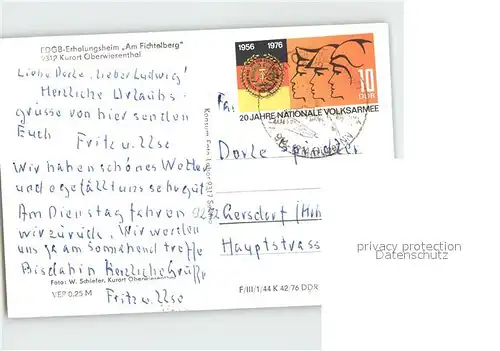 FDGB-Erholungsheim „Am Fichtelberg"
9312 Kurort Oberwiesenthal
Liebe Dorle, lieber Ludwig!
Herzliche Urlaubs-
grüsse von hier senden
Euch
Fritz u. Ilse
Wir haben schönes Wetter
und es gefällt uns sehr gut
Am Dienstag fahren
wir zurück. Wir werden
uns ja am Sonnabend treffe
Bis dahin Herzliche Grüße
Foto: W. Schiefer, Kurort Oberwiesenthal
VEP 0,25 M
Fritz u. Ilse
1956 1976
10
DDR
20 JAHRE NATIONALE VOLKSARMEE
Fam
Dorle
9272 Gersdorf
Hauptstrass
F/III/1/44 K 42/76 DDR
privacy protection
Datenschutz